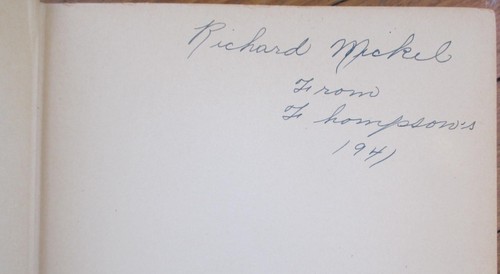 Richard Mickel
From
Thompson's
1941